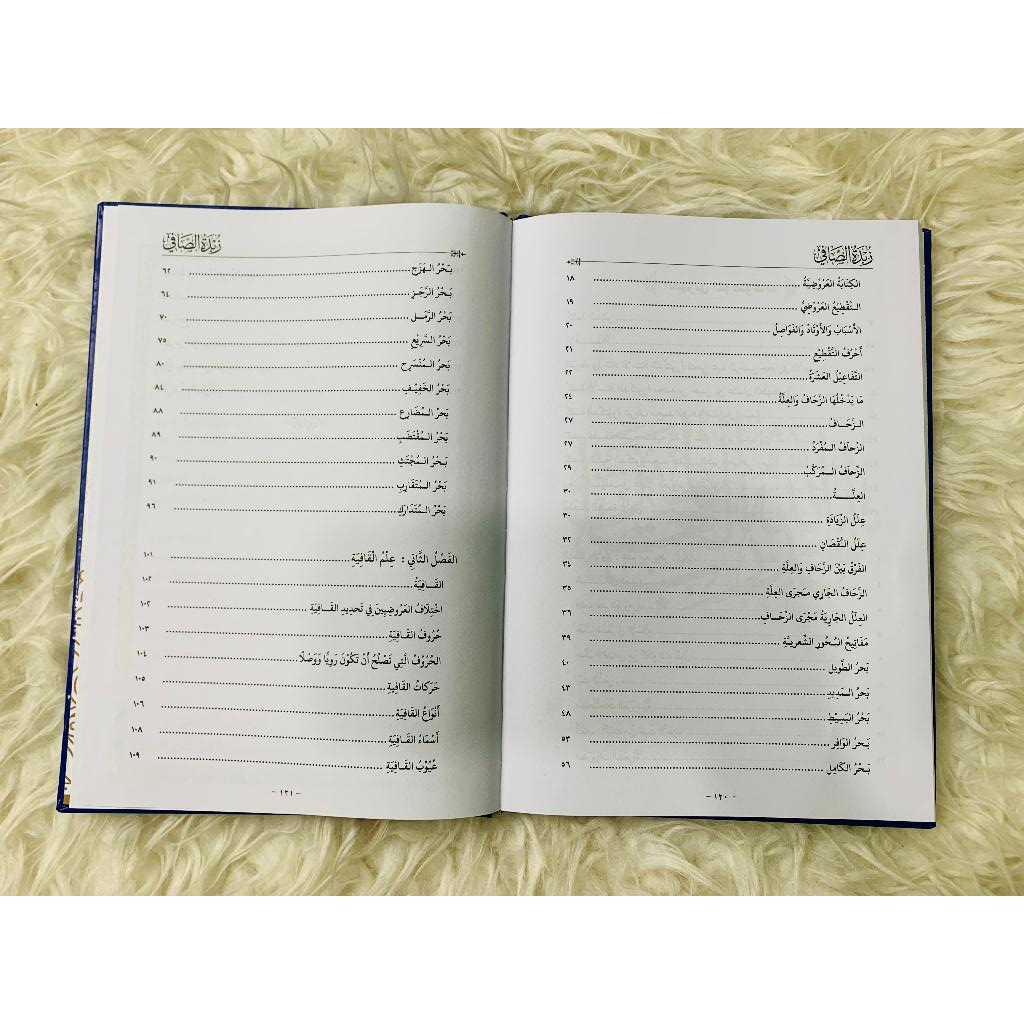 زُبْدَةُ الصَّافِي
الكِتَابَةُ العَرُوْضِيَّةُ ........ ١٨
التَّقْطِيْعُ العَرُوْضِيُّ ........ ١٩
الأَسْبَابُ وَالأَوْتَادُ وَالفَوَاصِلُ ........ ٢٠
أَحْرُفُ التَّقْطِيْعِ ........ ٢١
التَّفَاعِيْلُ العَشَرَةُ ........ ٢٢
مَا يَدْخُلُهَا الزِّحَافُ وَالعِلَّةُ ........ ٢٤
الزِّحَافُ ........ ٢٧
الزِّحَافُ المُفْرَدُ ........ ٢٧
الزِّحَافُ المُرَكَّبُ ........ ٢٩
العِلَّةُ ........ ٣٠
عِلَلُ الزِّيَادَةِ ........ ٣٠
عِلَلُ النُّقْصَانِ ........ ٣٢
الفَرْقُ بَيْنَ الزِّحَافِ وَالعِلَّةِ ........ ٣٤
الزِّحَافُ الجَارِي مَجْرَى العِلَّةِ ........ ٣٥
العِلَلُ الجَارِيَةُ مَجْرَى الزِّحَافِ ........ ٣٦
مَفَاتِيْحُ البُحُوْرِ الشِّعْرِيَّةِ ........ ٣٩
بَحْرُ الطَّوِيْلِ ........ ٤٠
بَحْرُ المَدِيْدِ ........ ٤٣
بَحْرُ البَسِيْطِ ........ ٤٨
بَحْرُ الوَافِرِ ........ ٥٣
بَحْرُ الكَامِلِ ........ ٥٦
- ١٢٠ -
زُبْدَةُ الصَّافِي
بَحْرُ الهَزَجِ ........ ٦٢
بَحْرُ الرَّجَزِ ........ ٦٤
بَحْرُ الرَّمَلِ ........ ٧٠
بَحْرُ السَّرِيْعِ ........ ٧٥
بَحْرُ المُنْسَرِحِ ........ ٨٠
بَحْرُ الخَفِيْفِ ........ ٨٤
بَحْرُ المُضَارِعِ ........ ٨٨
بَحْرُ المُقْتَضَبِ ........ ٨٩
بَحْرُ المُجْتَثِّ ........ ٩٠
بَحْرُ المُتَقَارِبِ ........ ٩١
بَحْرُ المُتَدَارَكِ ........ ٩٦
الفَصْلُ الثَّانِي : عِلْمُ الْقَافِيَةِ ........ ١٠١
القَافِيَةُ ........ ١٠٢
اخْتِلَافُ العَرُوْضِيِيْنَ فِي تَحْدِيْدِ القَافِيَةِ ........ ١٠٢
حُرُوْفُ القَافِيَةِ ........ ١٠٣
الحُرُوْفُ الَّتِي تَصْلُحُ أَنْ تَكُوْنَ رَوِيًّا وَوَصْلًا ........ ١٠٤
حَرَكَاتُ القَافِيَةِ ........ ١٠٥
أَنْوَاعُ القَافِيَةِ ........ ١٠٦
أَسْمَاءُ القَافِيَةِ ........ ١٠٨
عُيُوْبُ القَافِيَةِ ........ ١٠٩
- ١٢١ -